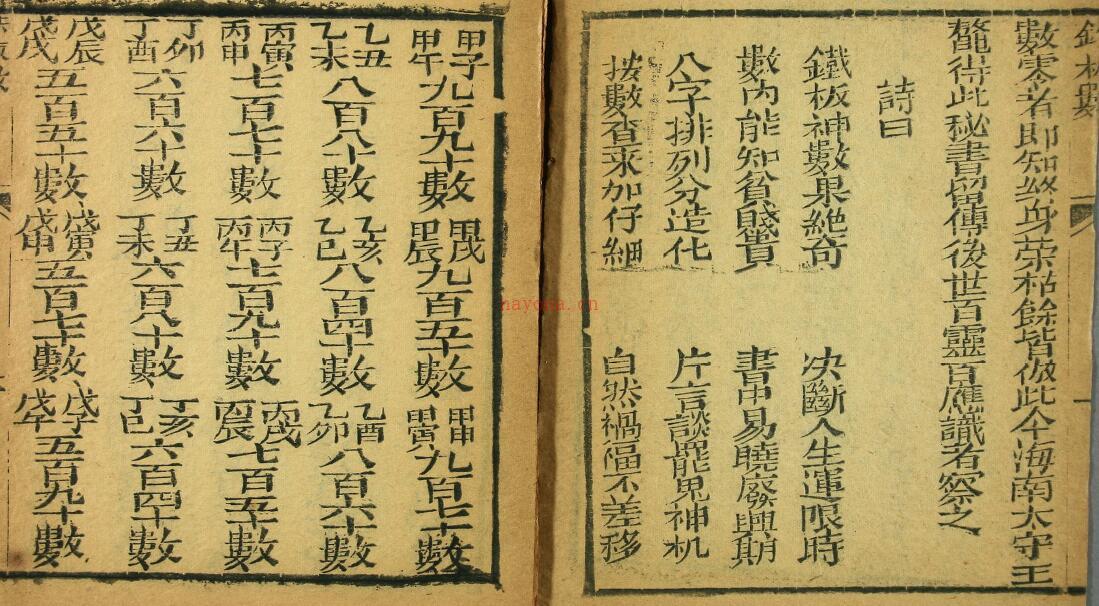 板數
數零者即知終身荣枯餘皆倣此今海南太守王
鼇得此秘書畱傳後世百靈百應識者察之
詩曰
鐵板神數果絶奇 决斷人生運限時
數內能知貧賤貴 書中易曉廢興期
八字排列分造化 片言談罷鬼神机
按數查来加仔細 自然禍福不差移
甲子甲午九百九十數 甲戌甲辰九百五十數 甲申甲寅九百七十數
乙丑乙未八百八十數 乙亥乙巳八百四十數 乙酉乙卯八百六十數
丙寅丙申七百七十數 丙子丙午七百九十數 丙戌丙辰七百五十數
丁卯丁酉六百六十數 丁丑丁未六百八十數 丁亥丁巳六百四十數
戊辰戊戌五百五十數 戊寅戊申五百七十數 戊子戊午五百九十數